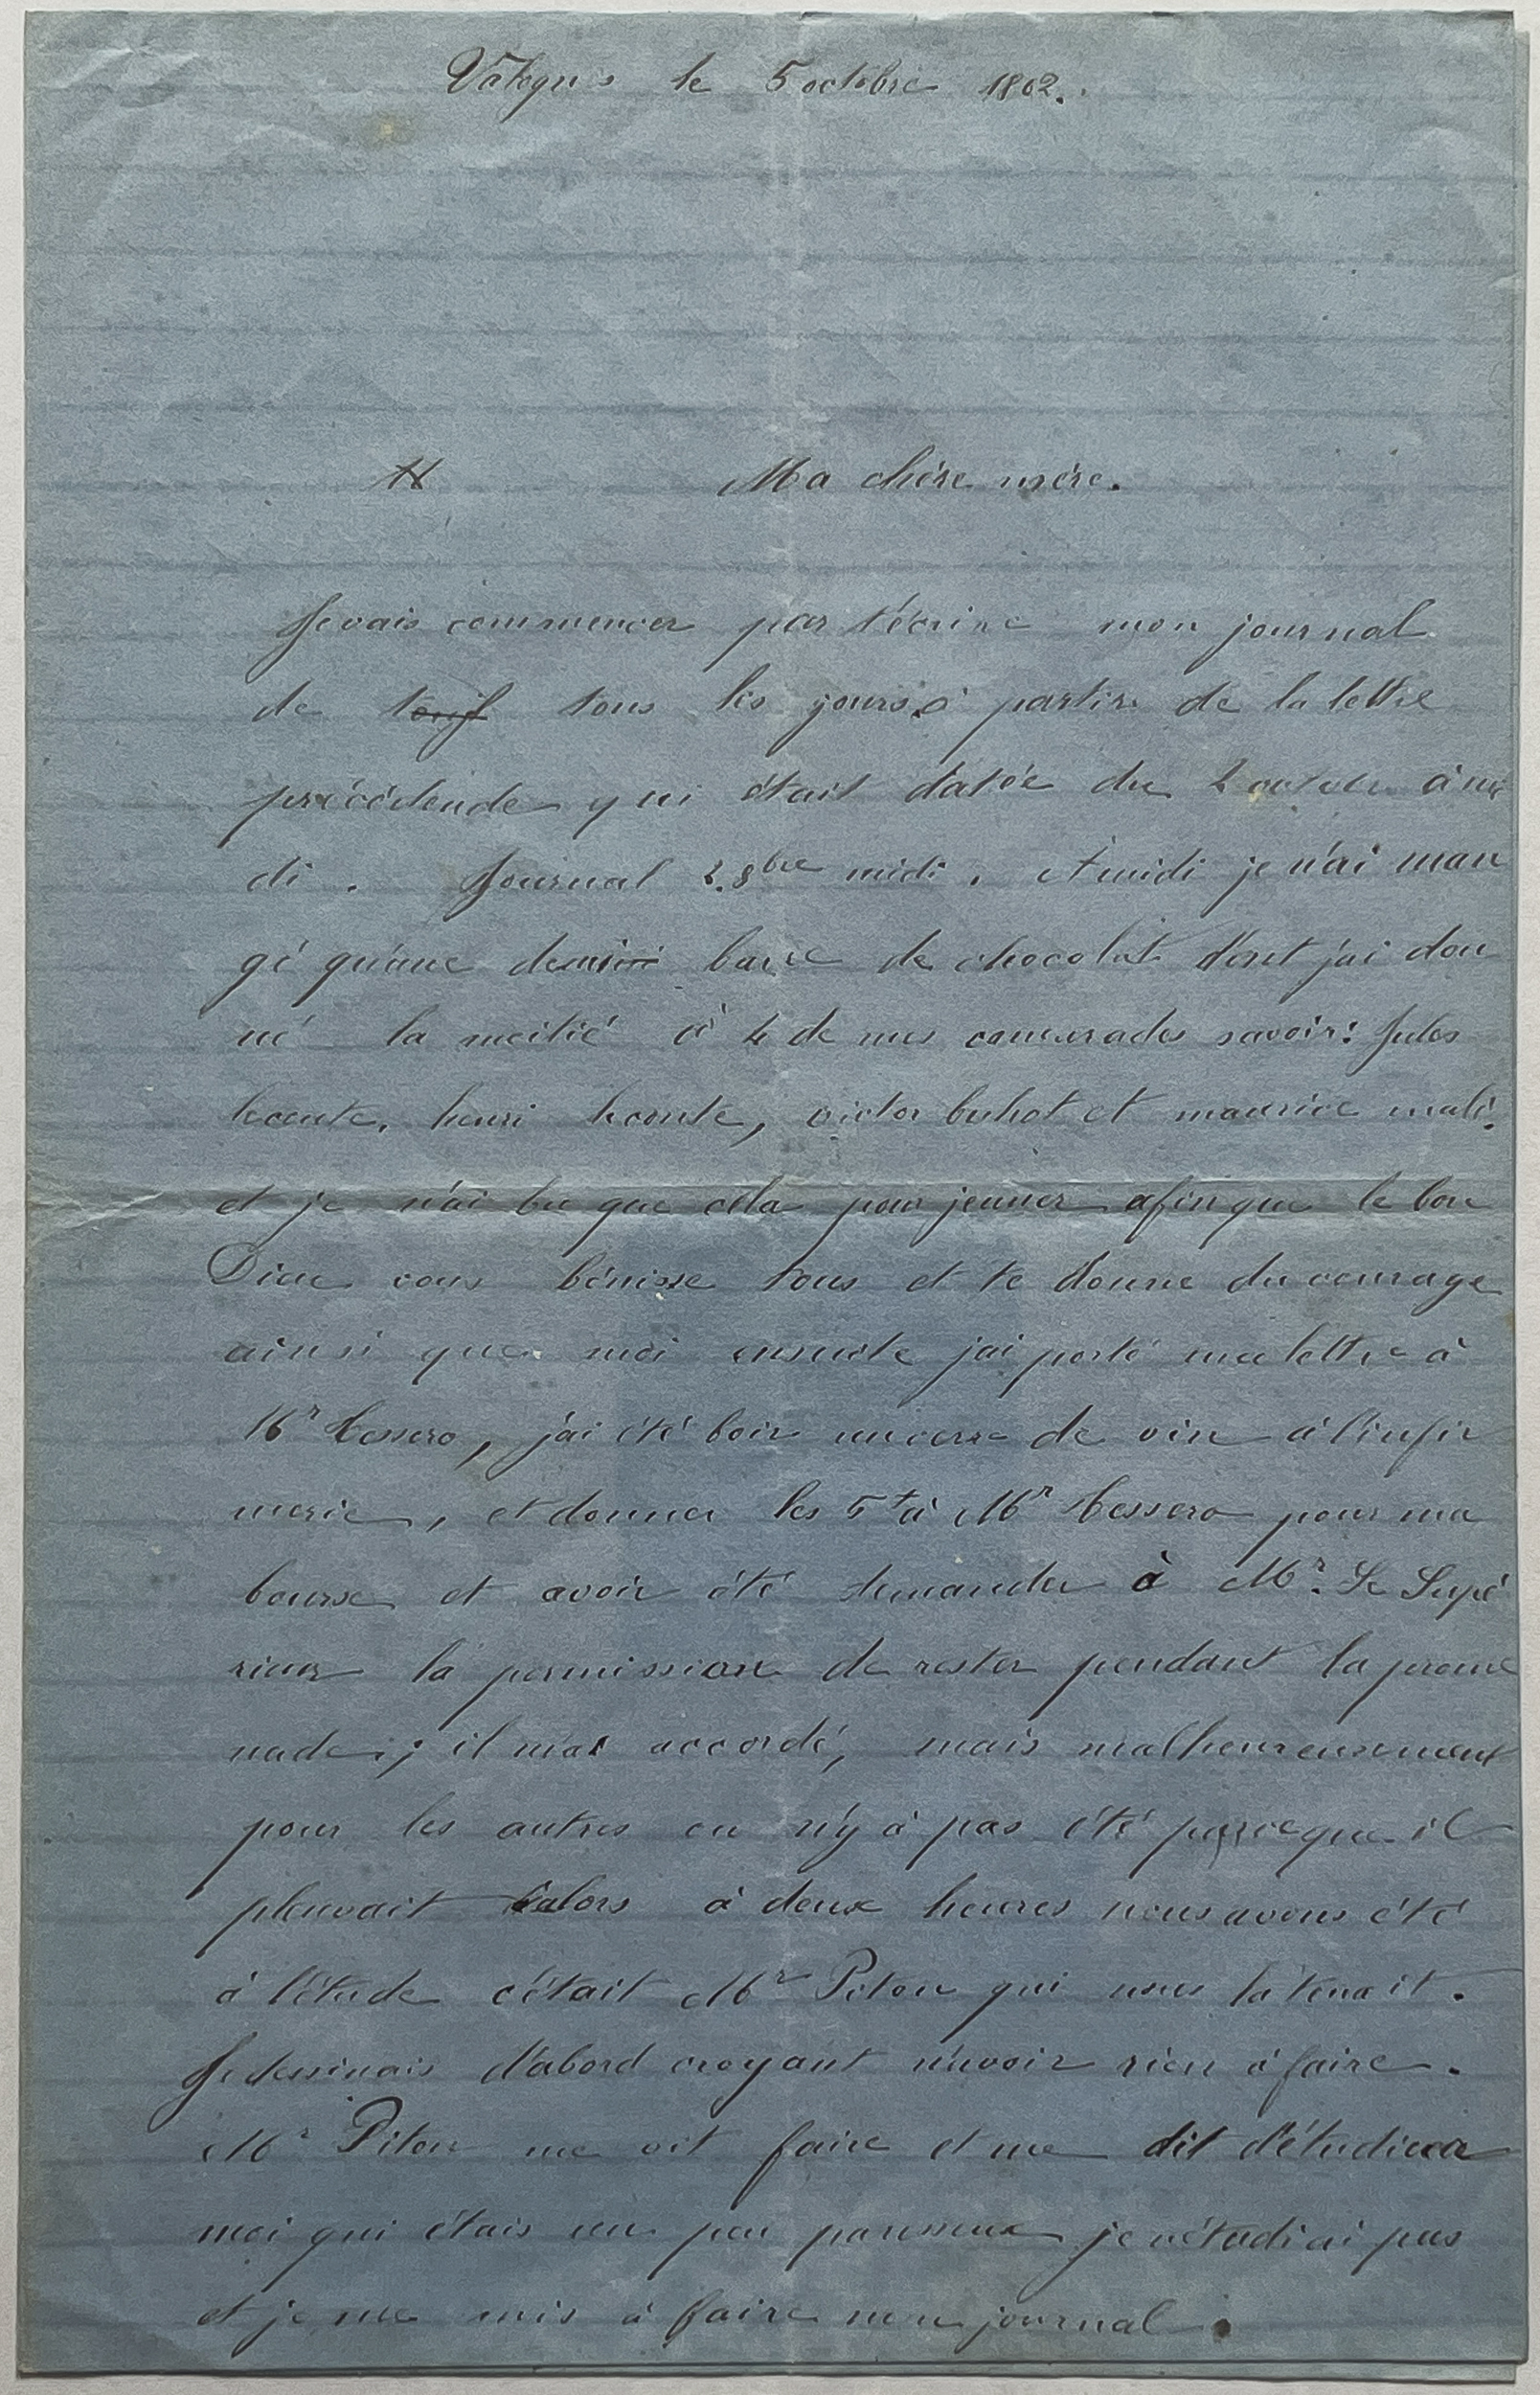 le 5 octobre 1862.
Ma chère mère.
Je vais commencer par t'écrire mon journal
de tous les jours à partir de la lettre
précédende qui était datée du 2 à mi
di. Journal 2.8bre midi. A midi je n'ai man
gé qu'une demi barre de chocolat dont j'ai don
né la moitié à 4 de mes camarades savoir: Jules
lecomte, henri lecomte, victor buhot et maurice
et je n'ai bu que cela pour jeuner afin que le bon
Dieu vous bénisse tous et te donne du courage
ainsi que moi ensuite j'ai porté ma lettre à
Mr Tessero, j'ai été boir un verre de vin à l'infir
merie, et donner les 5 à Mr Tessero pour ma
bourse et avoir été demander à Mr. Le Supé
rieur la permission de rester pendant la prome
nade; il m'a accordé, mais malheureusement
pour les autres on n'y à pas été parceque il
pleuvait alors à deux heures nous avons été
à l'étude c'était Mr Piton qui nous la tenait.
Je dessinais d'abord croyant n'avoir rien à faire.
Mr Piton me vit faire et me dit d'étudier
moi qui étais un peu paresseux je n'étudiai pas
et je me mis à faire mon journal.